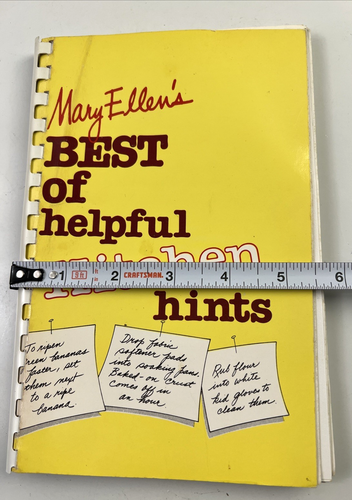 Mary Ellen's
BEST
of
helpful
Kitchen
1 2 CRAFTSMAN. 3 4 5 6
hints
To ripen
green bananas
faster, set
them next
to a ripe
banana.
Drop fabric
softener pads
into soaking pans.
Baked-on crust
comes off in
an hour
Rub flour
into white
kid gloves to
clean them.